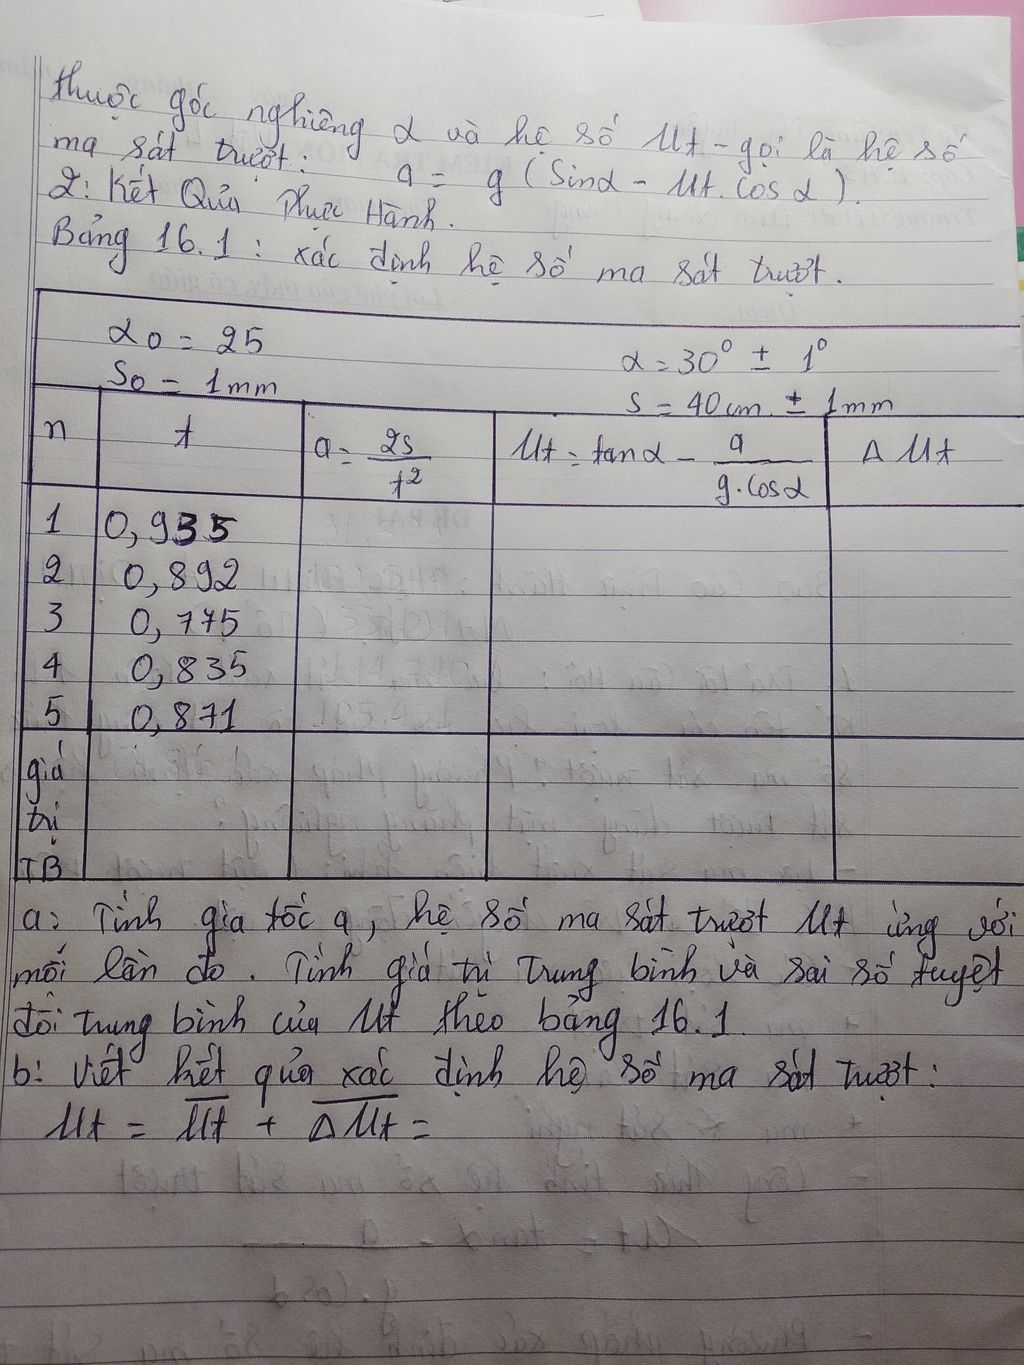 thuộc góc nghiêng α và hệ số μt - gọi là hệ số
ma sát trượt: a = g (Sinα - μt. Cos α).
2: Kết Quả Thực Hành.
Bảng 16.1 : xác định hệ số ma sát trượt.
αo = 25
α = 30° ± 1°
So = 1mm
s = 40cm ± 1mm
n t a = 2s/t² μt = tanα - a/g.cosα Δ μt
1 0,935
2 0,892
3 0,775
4 0,835
5 0,871
giá
trị
TB
a: Tính gia tốc a, hệ số ma sát trượt μt ứng với
mỗi lần đo. Tính giá trị trung bình và sai số tuyệt
đối trung bình của μt theo bảng 16.1
b: Viết kết quả xác định hệ số ma sát trượt:
μt = μ̅t̅ + Δ̅μ̅t̅ =